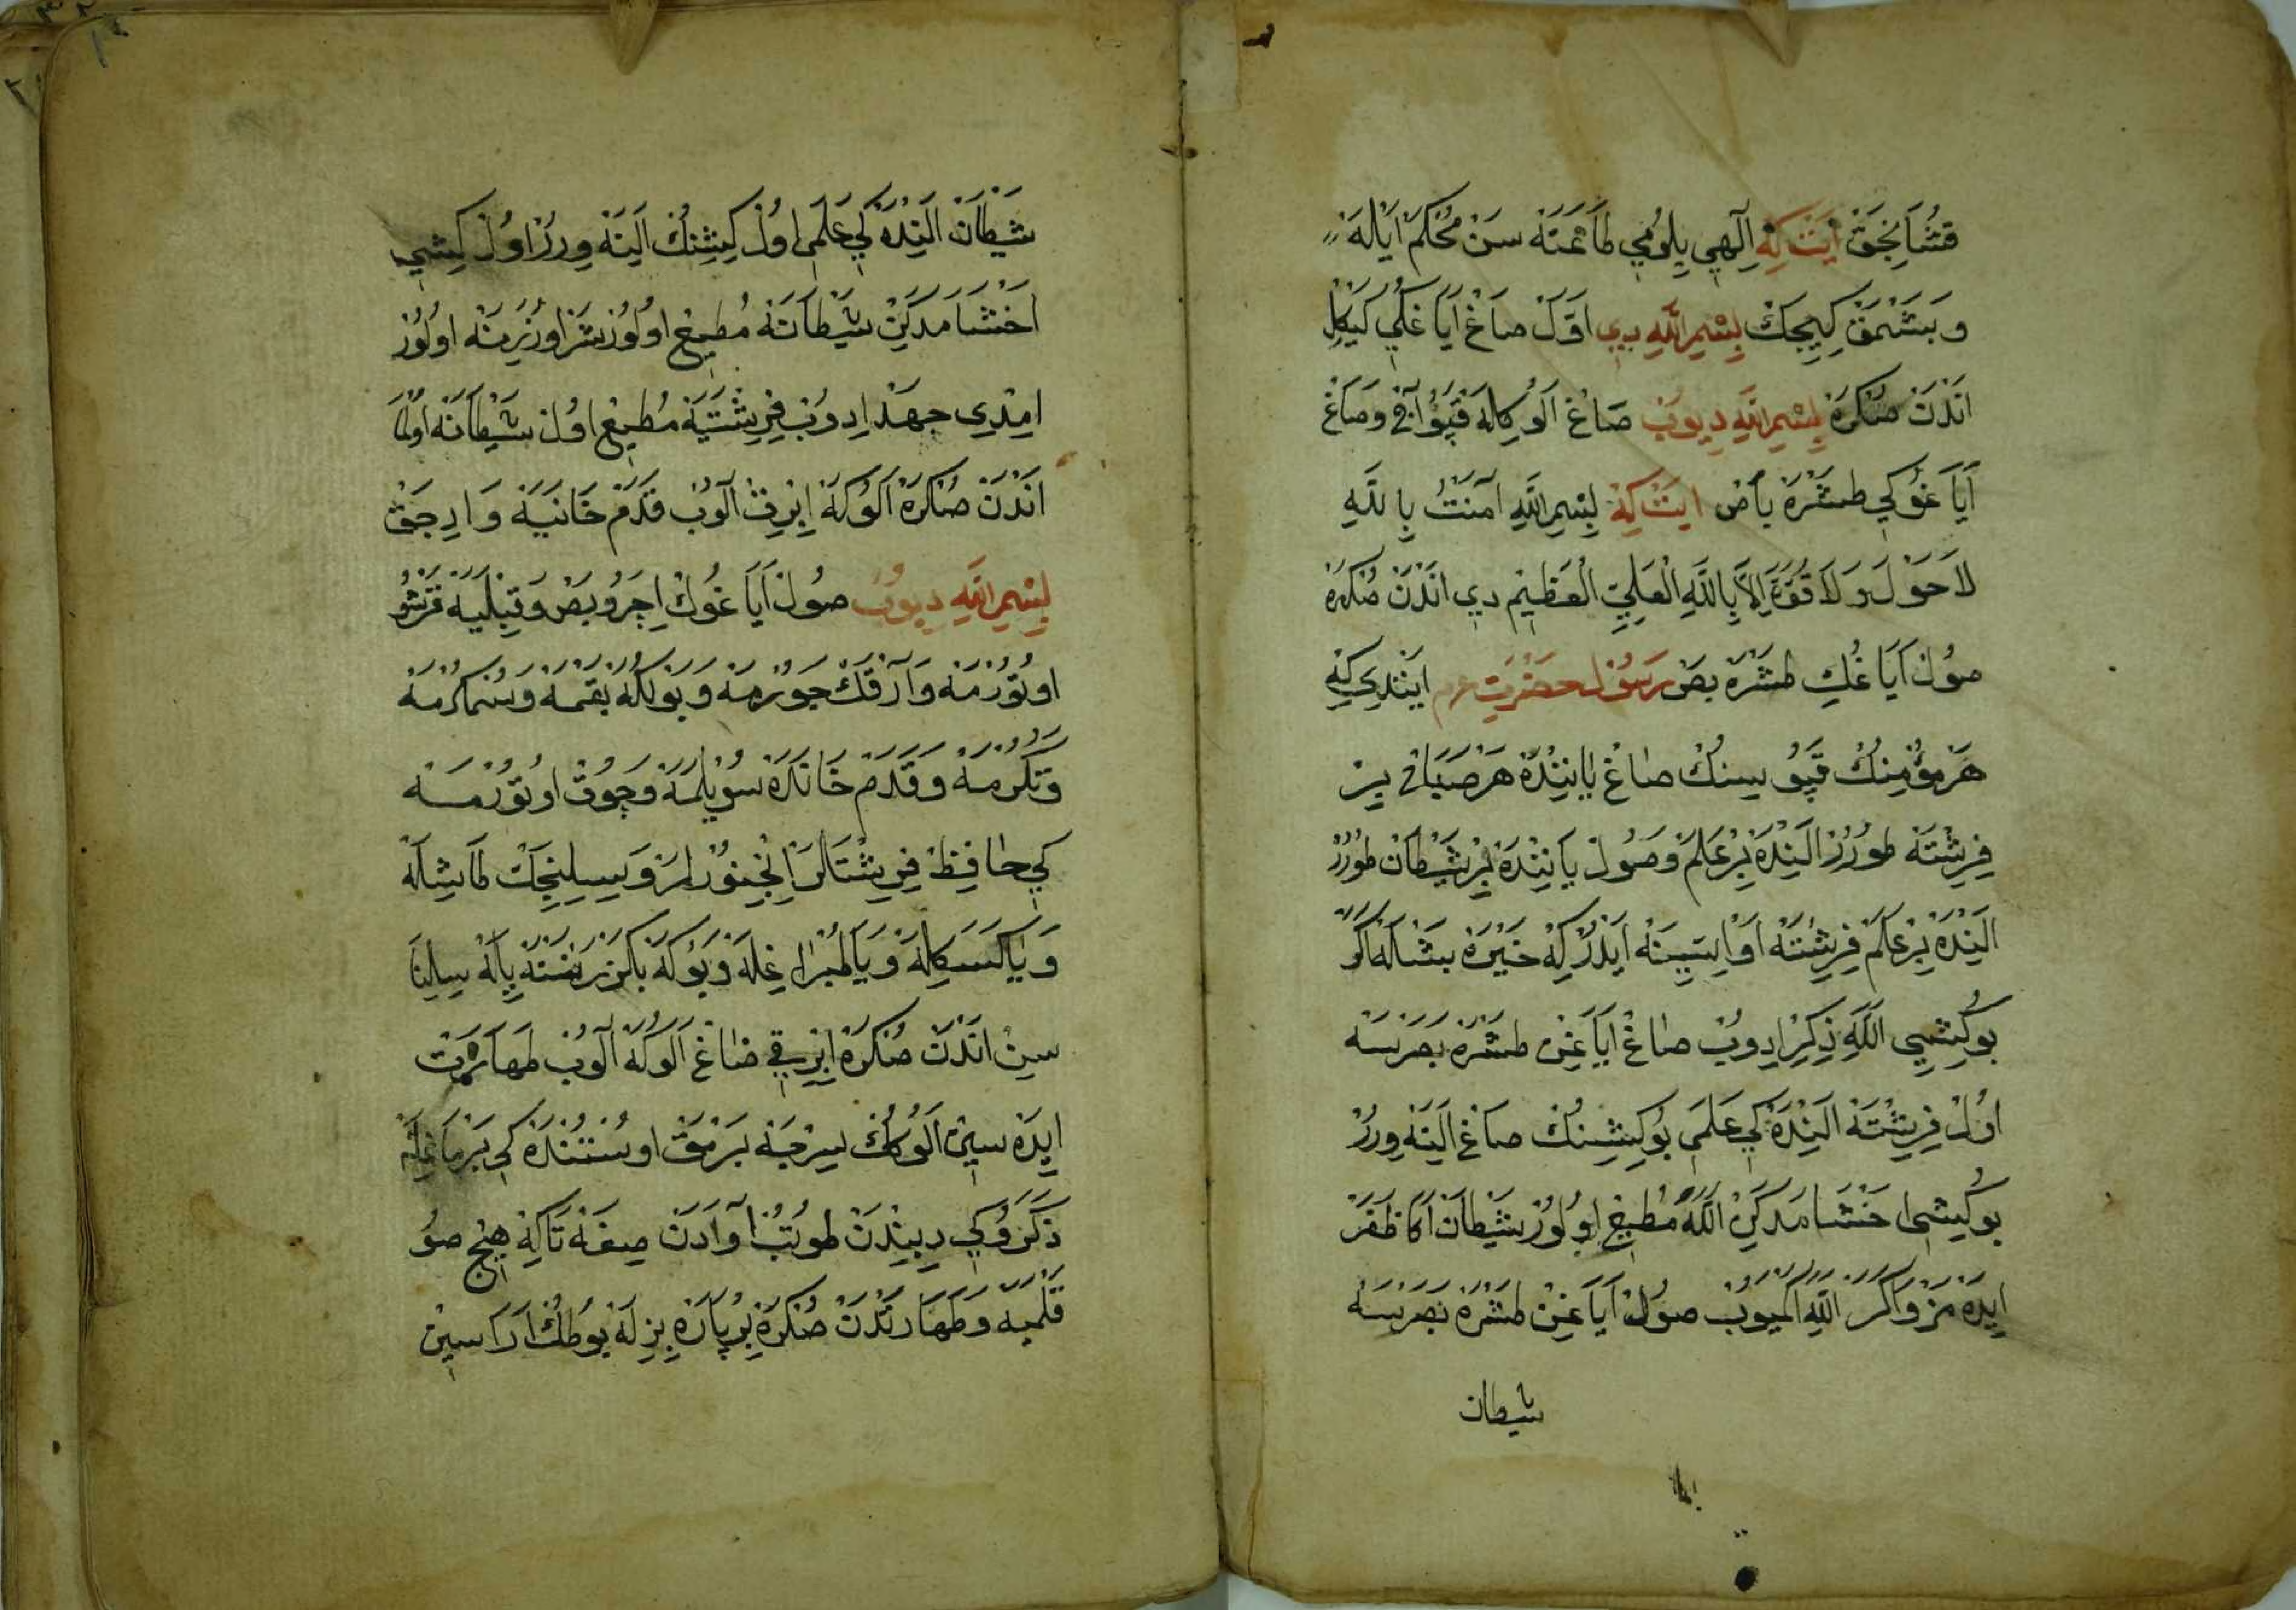 قُشَانِجَقْ اَيْتْ كِه اِلٰهِي بِلُومِي طَاعَتَه سَنْ مُحْكَمْ اَيْلَه
وَبَشْمَقْ كِيِجَكْ بِسْمِ اللّٰهِ دِي اَوَّلْ صَاغْ اَيَاغُكِي كَيْكِلْ
اَنْدَنْ صُكْرَه بِسْمِ اللّٰهِ دِيوُبْ صَاغْ اَلُوكِلَه قَپُو آچ وَصَاغْ
اَيَاغُوكِي طَشْرَه بَاصْ اَيْتْ كِه بِسْمِ اللّٰهِ آمَنْتُ بِاللّٰهِ
لَا حَوْلَ وَلَا قُوَّةَ اِلَّا بِاللّٰهِ الْعَلِيِّ الْعَظِيمِ دِي اَنْدَنْ صُكْرَه
صُولْ اَيَاغُكِي طَشْرَه بَصْ رَسُولْ حَضْرَتِ عم اَيْتْدِي كِه
هَرْ مُؤْمِنِكْ قَپُوسِنُكْ صَاغْ يَانِنْدَه هَرْ صَبَاحْ بِرْ
فِرِشْتَه طُورُرْ اَلِنْدَه بِرْ عَلَمْ وَصُولْ يَانِنْدَه بِرْ شَيْطَانْ طُورُرْ
اَلِنْدَه بِرْ عَلَمْ فِرِشْتَه اَوْ اِسِّيسِنَه اَيْدُرْ كِه خَيْرَه بَشْلَه اَكَرْ
بُو كِيشِي اللّٰهِ ذِكِرْ ادِوُبْ صَاغْ اَيَاغِنْ طَشْرَه بَصَرْسَه
اوُلْ فِرِيشْتَه اَلِنْدَه كِي عَلَمِي بُو كِيشِنُكْ صَاغْ اَلِنَه وِرُرْ
بُو كِيشِي اَخْشَامَدَكِنْ اللّٰهَ مُطِيعْ اوُلُورْ شَيْطَانْ اَكَا ظَفَرْ
اِيدَه مَزْ وَاَكَرْ اللّٰهِ اَكْمَيُوبْ صُولْ اَيَاغِنْ طَشْرَه بَصَرْسَه
شيطان
شَيْطَانْ اَلِنْدَه كِي عَلَمِي اوُلْ كِيشِنُكْ اَلِنَه وِرُرْ اوُلْ كِيشِي
اَخْشَامَدَكِنْ شَيْطَانَه مُطِيعْ اوُلُورْ شَرْ اوُزَرِينَه اوُلُورْ
اِمْدِي جَهْدْ ادِوُبْ فِرِيشْتَيَه مُطِيعْ اوُلْ شَيْطَانَه اوُلْمَا
اَنْدَنْ صُكْرَه اَلُوكَه اِبْرِقْ آلُوبْ قَدَمْ خَانَيَه وَارِجَقْ
بِسْمِ اللّٰهِ دِيوُبْ صُولْ اَيَاغُوكْ اِچَرُو بَصْ وَقِبْلَيَه قَرْشُو
اوُتُورْمَه وَآرْقَكْ چَوُرْمَه وَبَوْلِكَه بَقْمَه وَسُمْكُرْمَه
وَتُكُرْمَه وَقَدَمْ خَانَدَه سُوَيْلَمَه وَچُوقْ اوُتُورْمَه
كِي حَافِظْ فِرِيشْتَلَرْ اِنْجِنُورْلَرْ وَسِيلِنِجَكْ طَاشِلَه
وَيَا كَسَكِلَه وَيَا طُپْرَاغِلَه وَبُوكَه بَكْزَرْ نَسْنَه يِلَه سِلِنَا
سِنْ اَنْدَنْ صُكْرَه اِبْرِيقِي صَاغْ اَلُوكَه آلُوبْ طَهَارَتْ
اِيدَه سِينْ اَلُوكُكْ سِرْچَه بَرْمَقْ اوُسْتُنْدَه كِي بَرْمَاغِلَه
ذَكَرُوكِي دِيبِنْدَنْ طُوتُبْ اَوَادَنْ صِغَه تَا كِه هِيچْ صُو
قَلْمَيَه وَطَهَارَتْدَنْ صُكْرَه بِرْ پَارَه بِزِلَه بُوطُكْ اَرَاسِينْ